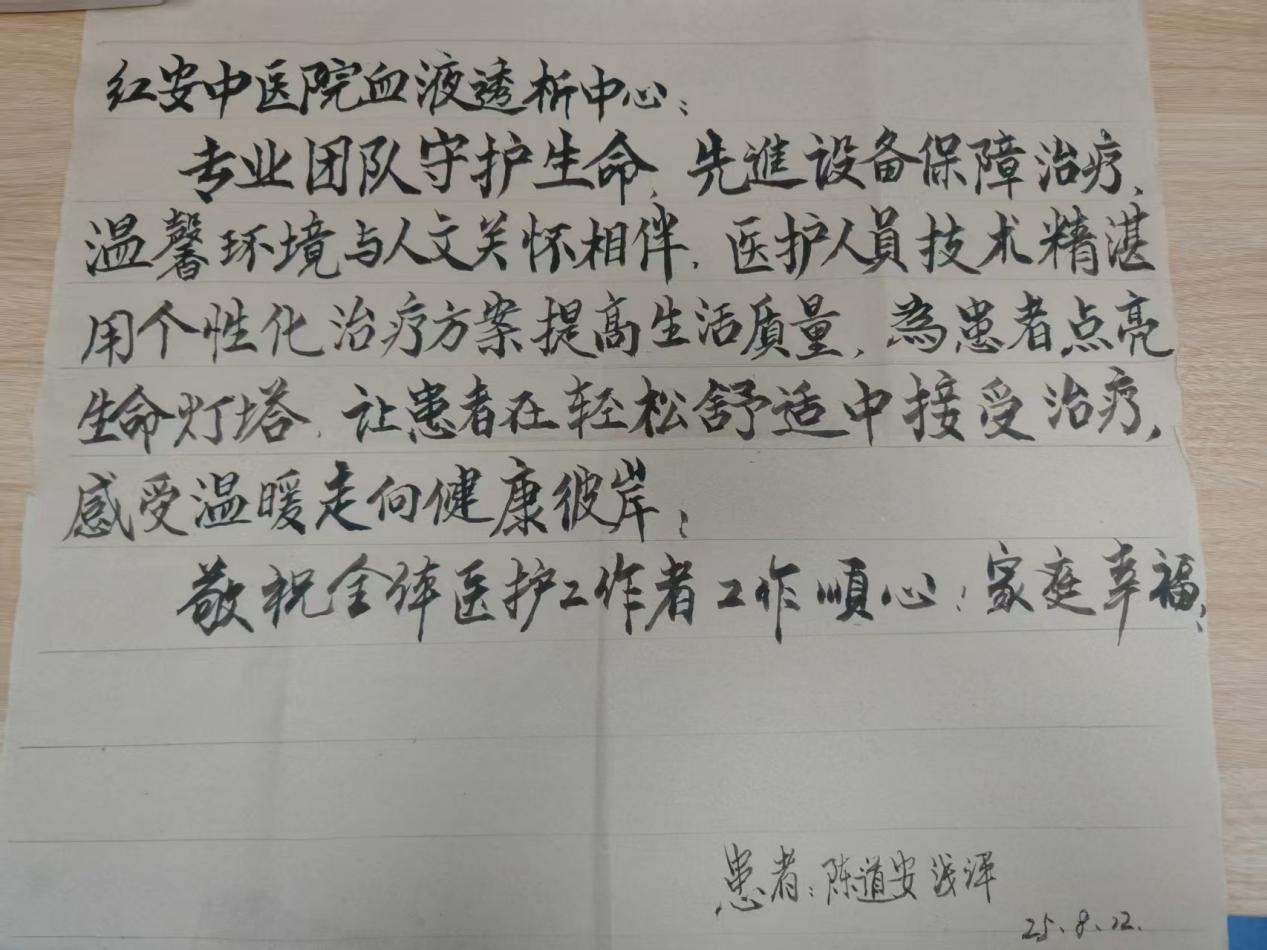 红安中医院血液透析中心：
专业团队守护生命，先進设备保障治疗，
温馨环境与人文关怀相伴，医护人员技术精湛
用个性化治疗方案提高生活质量，為患者点亮
生命灯塔，让患者在轻松舒适中接受治疗，
感受温暖走向健康彼岸；
敬祝全体医护工作者工作順心；家庭幸福；
患者：陈道安
25.8.12.